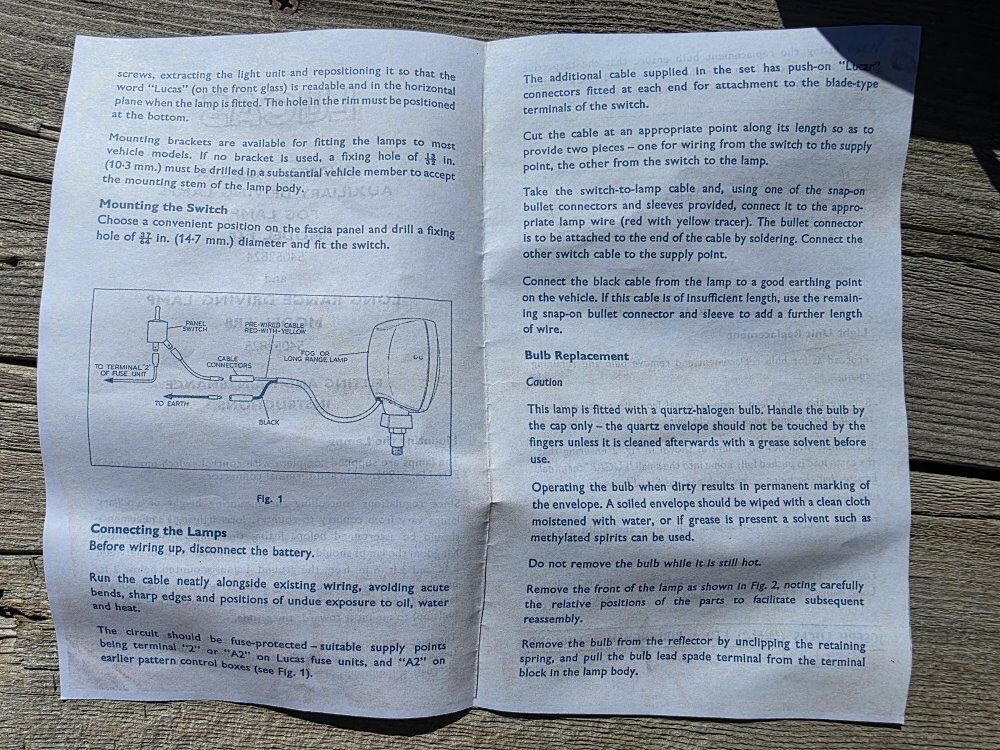 screws, extracting the light unit and repositioning it so that the
word "Lucas" (on the front glass) is readable and in the horizontal
plane when the lamp is fitted. The hole in the rim must be positioned
at the bottom.
Mounting brackets are available for fitting the lamps to most
vehicle models. If no bracket is used, a fixing hole of 13/32 in.
(10·3 mm.) must be drilled in a substantial vehicle member to accept
the mounting stem of the lamp body.
Mounting the Switch
Choose a convenient position on the fascia panel and drill a fixing
hole of 37/64 in. (14·7 mm.) diameter and fit the switch.
PANEL
SWITCH
PRE-WIRED CABLE
RED-WITH-YELLOW
FOG OR
LONG RANGE LAMP
CABLE
CONNECTORS
TO TERMINAL "2"
OF FUSE UNIT
TO EARTH
BLACK
Fig. 1
Connecting the Lamps
Before wiring up, disconnect the battery.
Run the cable neatly alongside existing wiring, avoiding acute
bends, sharp edges and positions of undue exposure to oil, water
and heat.
The circuit should be fuse-protected – suitable supply points
being terminal "2" or "A2" on Lucas fuse units, and "A2" on
earlier pattern control boxes (see Fig. 1).
The additional cable supplied in the set has push-on "Lucar"
connectors fitted at each end for attachment to the blade-type
terminals of the switch.
Cut the cable at an appropriate point along its length so as to
provide two pieces – one for wiring from the switch to the supply
point, the other from the switch to the lamp.
Take the switch-to-lamp cable and, using one of the snap-on
bullet connectors and sleeves provided, connect it to the appro-
priate lamp wire (red with yellow tracer). The bullet connector
is to be attached to the end of the cable by soldering. Connect the
other switch cable to the supply point.
Connect the black cable from the lamp to a good earthing point
on the vehicle. If this cable is of insufficient length, use the remain-
ing snap-on bullet connector and sleeve to add a further length
of wire.
Bulb Replacement
Caution
This lamp is fitted with a quartz-halogen bulb. Handle the bulb by
the cap only – the quartz envelope should not be touched by the
fingers unless it is cleaned afterwards with a grease solvent before
use.
Operating the bulb when dirty results in permanent marking of
the envelope. A soiled envelope should be wiped with a clean cloth
moistened with water, or if grease is present a solvent such as
methylated spirits can be used.
Do not remove the bulb while it is still hot.
Remove the front of the lamp as shown in Fig. 2, noting carefully
the relative positions of the parts to facilitate subsequent
reassembly.
Remove the bulb from the reflector by unclipping the retaining
spring, and pull the bulb lead spade terminal from the terminal
block in the lamp body.